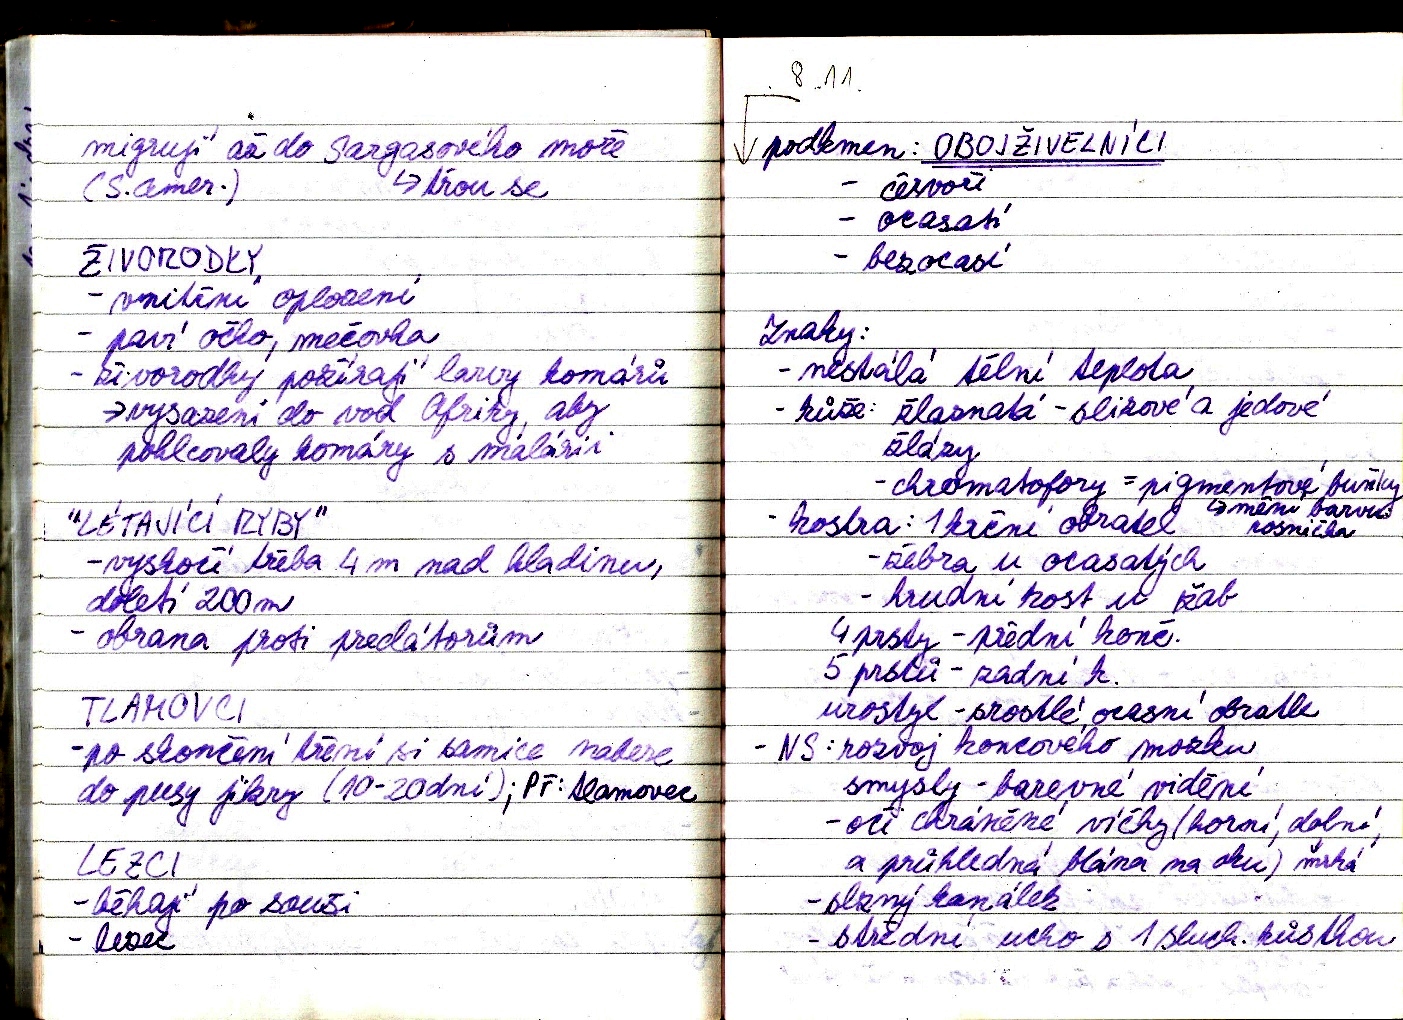 migrují až do Sargasového moře
(S. Amer.) ↳ třou se
ŽIVORODKY
- vnitřní oplození
- paví očko, mečovka
- živorodky požírají larvy komárů
→ vysazení do vod Afriky, aby
pohlcovaly komáry s malárií
"LÉTAJÍCÍ RYBY"
- vyskočí třeba 4 m nad hladinu,
doletí 200 m
- obrana proti predátorům
TLAMOVCI
- po skončení tření si samice nabere
do pusy jikry (10-20dní); Př: tlamovec
LEZCI
- běhají po souši
- lezec
8.11.
podkmen: OBOJŽIVELNÍCI
- červoři
- ocasatí
- bezocasí
Znaky:
- nestálá tělní teplota
- kůže: žlaznatá - slizové a jedové
žlázy
- chromatofory = pigmentové buňky
↳ mění barvu
- kostra: 1 krční obratel rosnička
- žebra u ocasatých
- hrudní kost u žab
4 prsty - přední konč.
5 prstů - zadní k.
urostyl - srostlé ocasní obratle
- NS: rozvoj koncového mozku
smysly - barevné vidění
- oči chráněné víčky (horní, dolní,
a průhledná blána na oku) mrká
- slzný kanálek
- střední ucho s 1 sluch. kůstkou